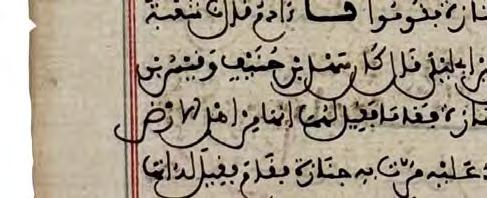 نازة فقوموا نا ءادم قال نا شعبة
بن ابي ليلى قال كان سهل بن حنيف وقيس بن
نازة فقاما فقيل لهما انها من اهل الارض
عليه مرت به جنازة فقام فقيل له انها